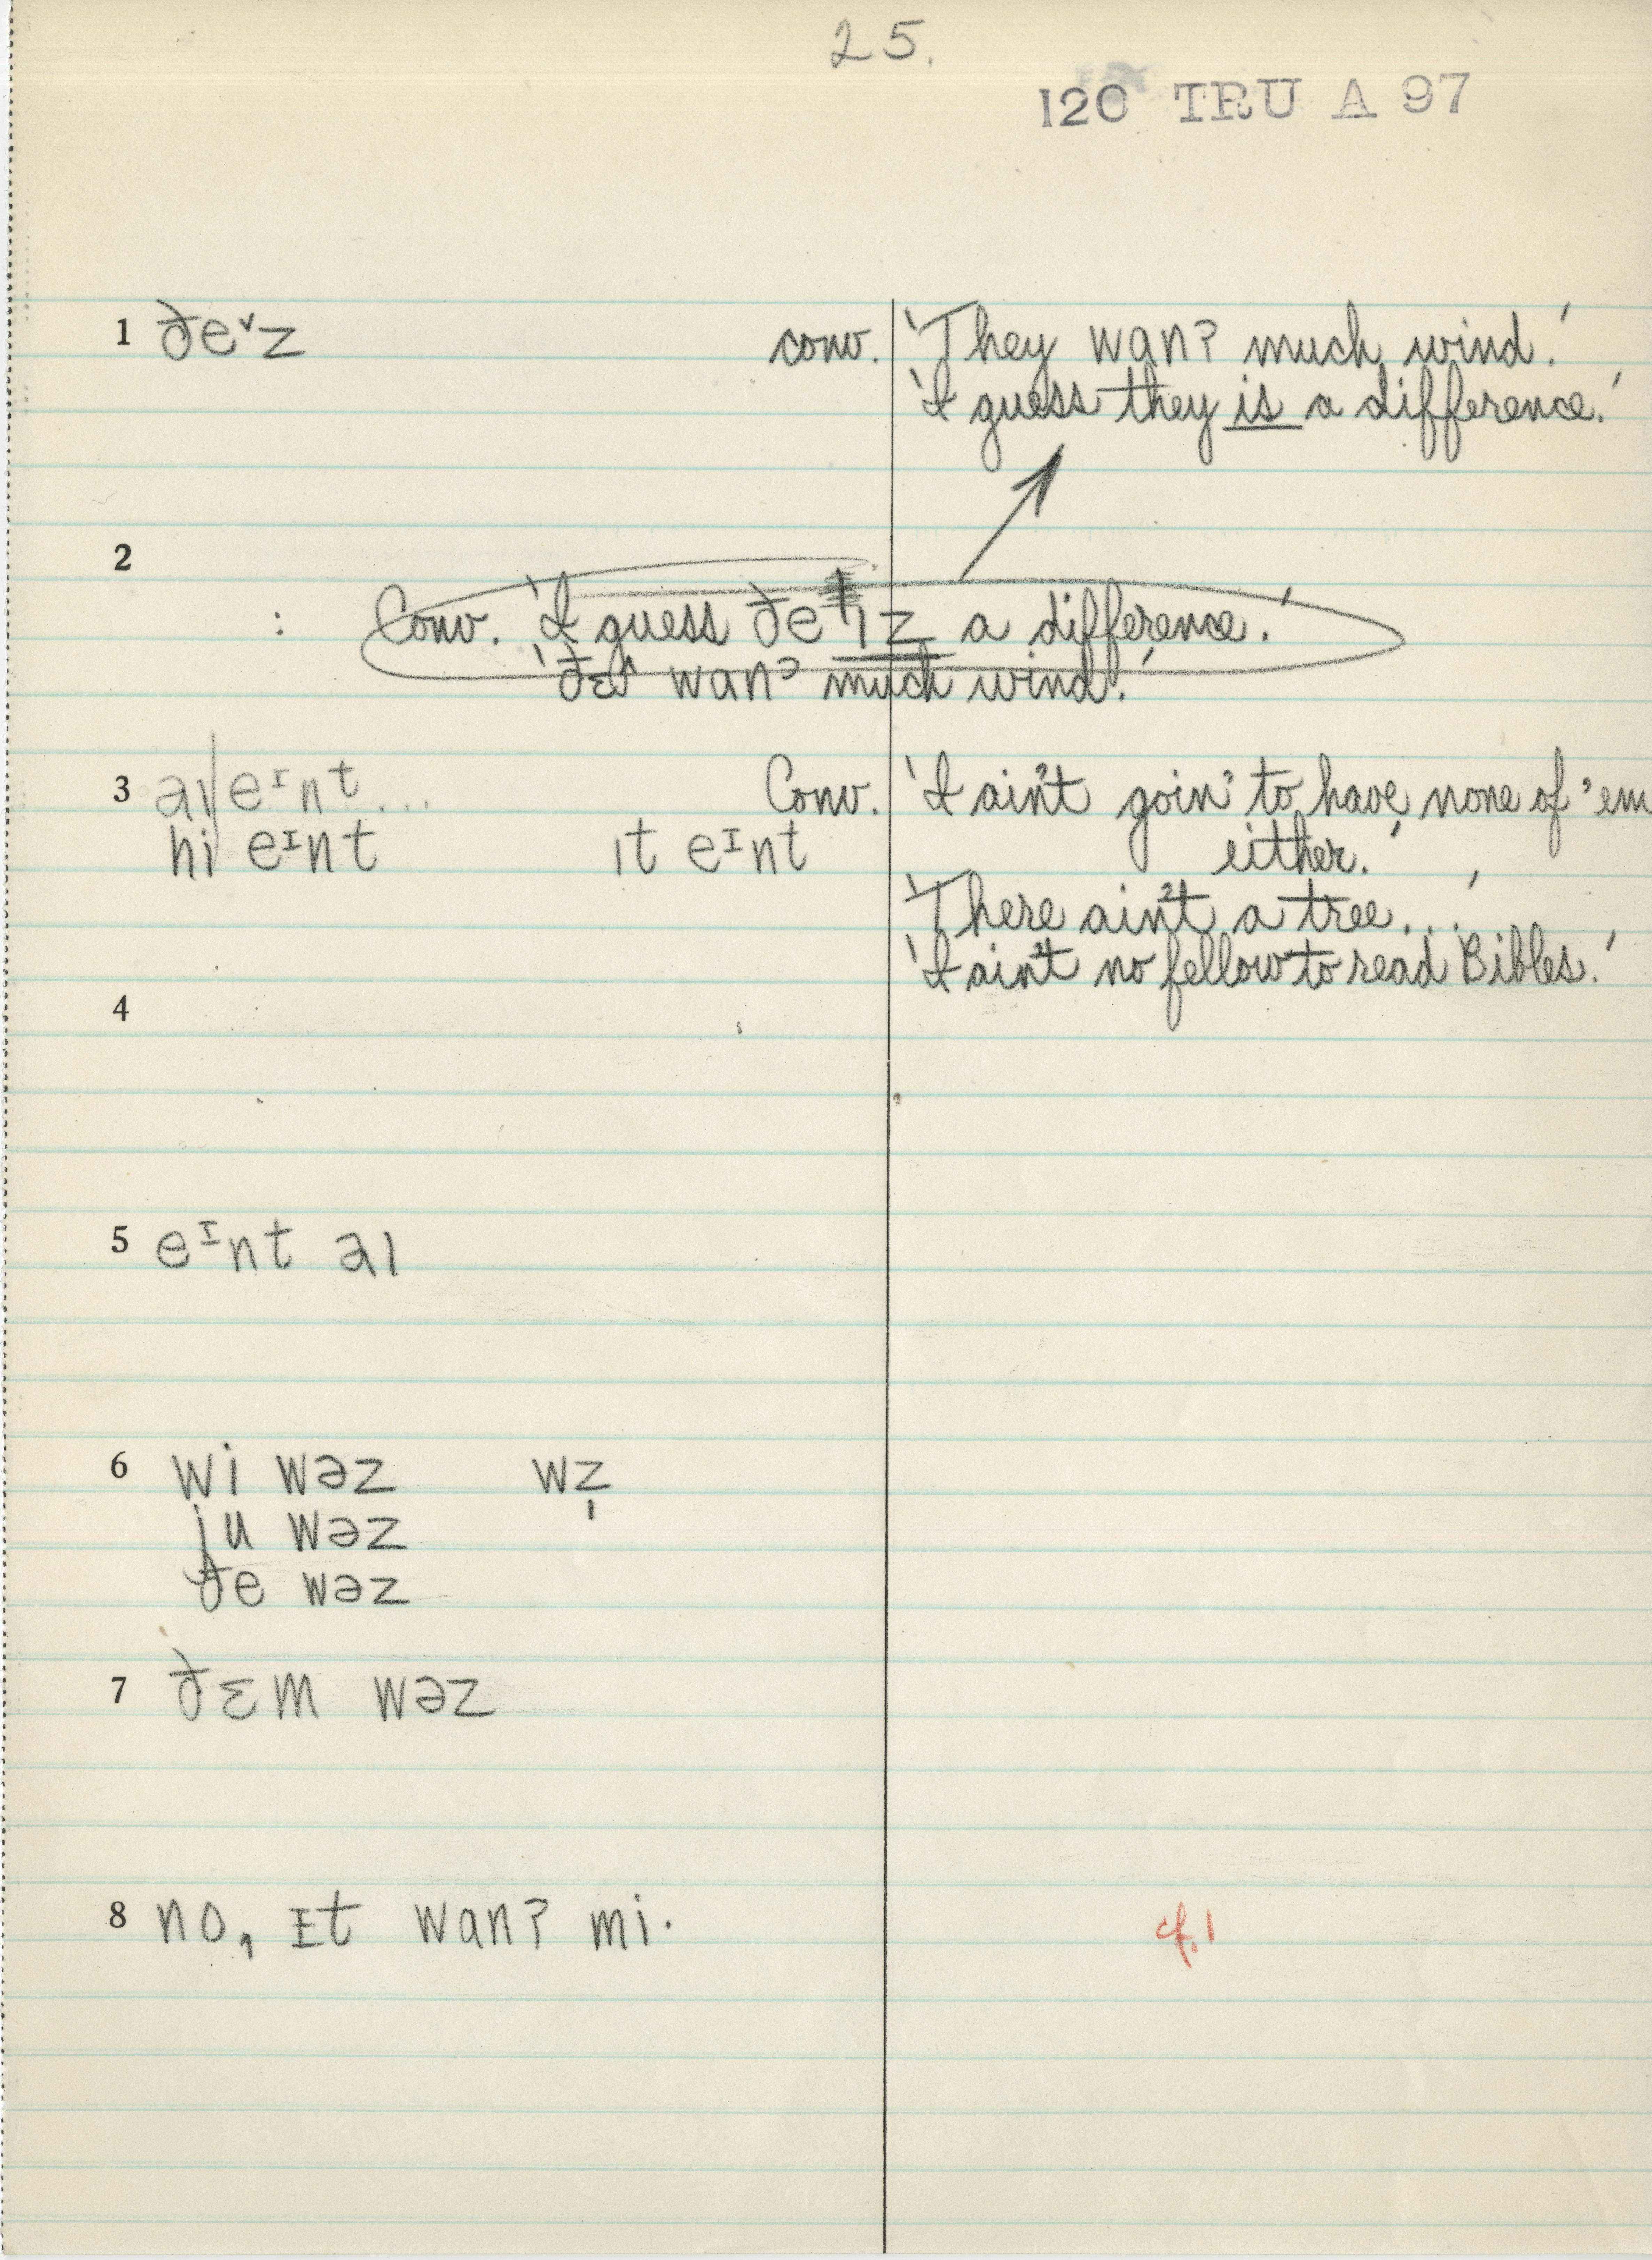 25.
120 TRU A 97
1 ðeˇz conv. 'They wanʔ much wind.'
'I guess they is a difference.'
2
: Conv. 'I guess ðe ɪz a difference.'
'ðɛ^ wanʔ much wind.'
3 aɪ|eᴵnt... Conv. 'I ain't goin' to have none of 'em
hi eᴵnt ɪt eᴵnt either.'
'There ain't a tree...'
'I ain't no fellow to read Bibles.'
4
5 eᴵnt aɪ
6 wi wəz wz̩
ju wəz
ðe wəz
7 ðɛm wəz
8 no, ɪt wanʔ mi. cf. 1